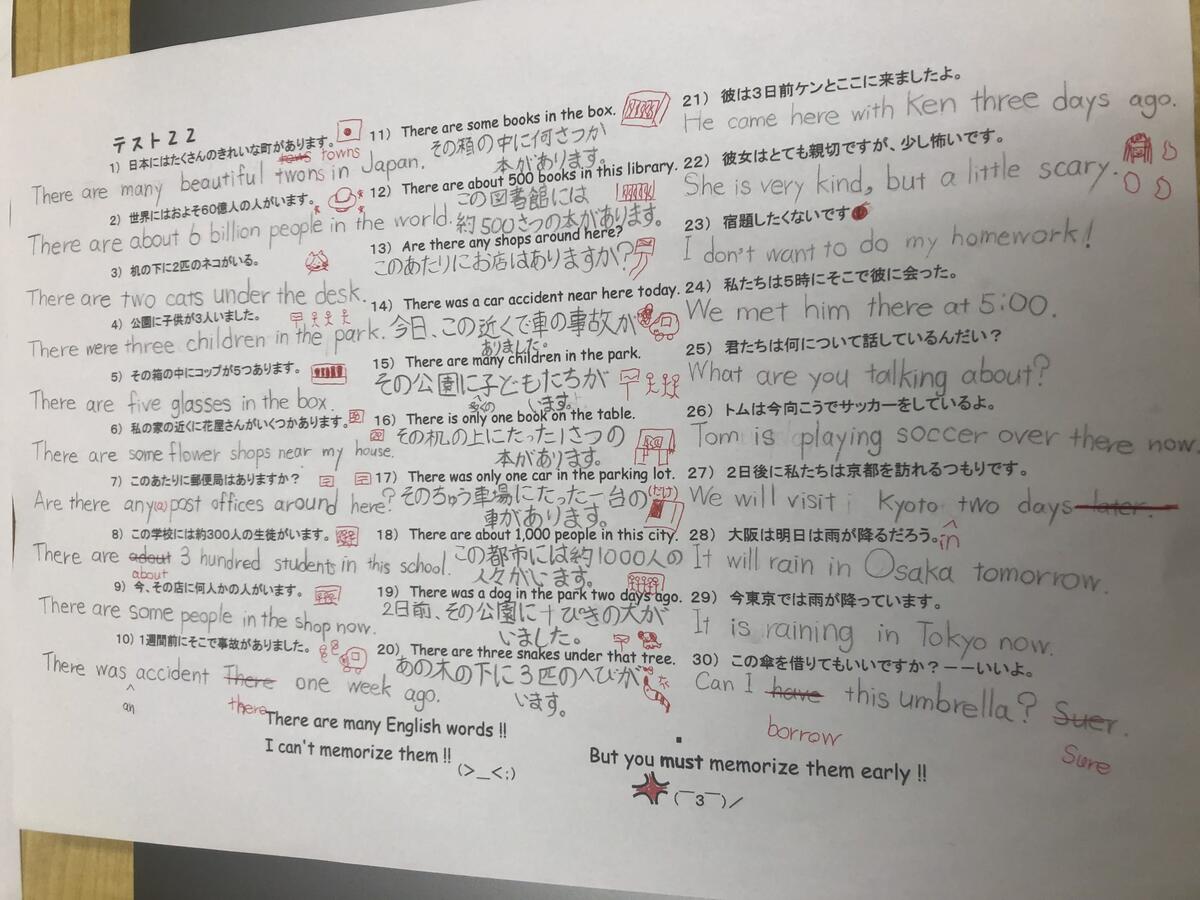 テスト22
1) 日本にはたくさんのきれいな町があります。
towns towns
There are many beautiful twons in Japan.
2) 世界にはおよそ60億人の人がいます。
There are about 6 billion people in the world.
3) 机の下に2匹のネコがいる。
There are two cats under the desk.
4) 公園に子供が3人いました。
There were three children in the park.
5) その箱の中にコップが5つあります。
There are five glasses in the box.
6) 私の家の近くに花屋さんがいくつかあります。
There are some flower shops near my house.
7) このあたりに郵便局はありますか?
Are there any(a) post offices around here?
8) この学校には約300人の生徒がいます。
There are adout 3 hundred students in this school.
about
9) 今、その店に何人かの人がいます。
There are some people in the shop now.
10) 1週間前にそこで事故がありました。
There was accident There one week ago.
an
there
There are many English words !!
I can't memorize them !!
(>_<;)
11) There are some books in the box.
その箱の中に何さつか
本があります。
12) There are about 500 books in this library.
この図書館には
約500さつの本があります。
13) Are there any shops around here?
このあたりにお店はありますか?
14) There was a car accident near here today.
今日、この近くで車の事故が
ありました。
15) There are many children in the park.
その公園に子どもたちが
多くの います。
16) There is only one book on the table.
その机の上にたった1さつの
本があります。
17) There was only one car in the parking lot.
そのちゅう車場にたった一台の(だけ)
車があります。
18) There are about 1,000 people in this city.
この都市には約1000人の
人々がいます。
19) There was a dog in the park two days ago.
2日前、その公園に一ぴきの犬が
いました。
20) There are three snakes under that tree.
あの木の下に3匹のへびが
います。
21) 彼は3日前ケンとここに来ましたよ。
He came here with Ken three days ago.
22) 彼女はとても親切ですが、少し怖いです。
She is very kind, but a little scary.
23) 宿題したくないです
I don't want to do my homework!
24) 私たちは5時にそこで彼に会った。
We met him there at 5:00.
25) 君たちは何について話しているんだい?
What are you talking about?
26) トムは今向こうでサッカーをしているよ。
Tom is playing soccer over there now.
27) 2日後に私たちは京都を訪れるつもりです。
We will visit Kyoto two days later.
in
28) 大阪は明日は雨が降るだろう。
It will rain in Osaka tomorrow.
29) 今東京では雨が降っています。
It is raining in Tokyo now.
30) この傘を借りてもいいですか?ーーいいよ。
Can I have this umbrella? Suer.
borrow
Sure
But you must memorize them early !!
(￣3￣)/